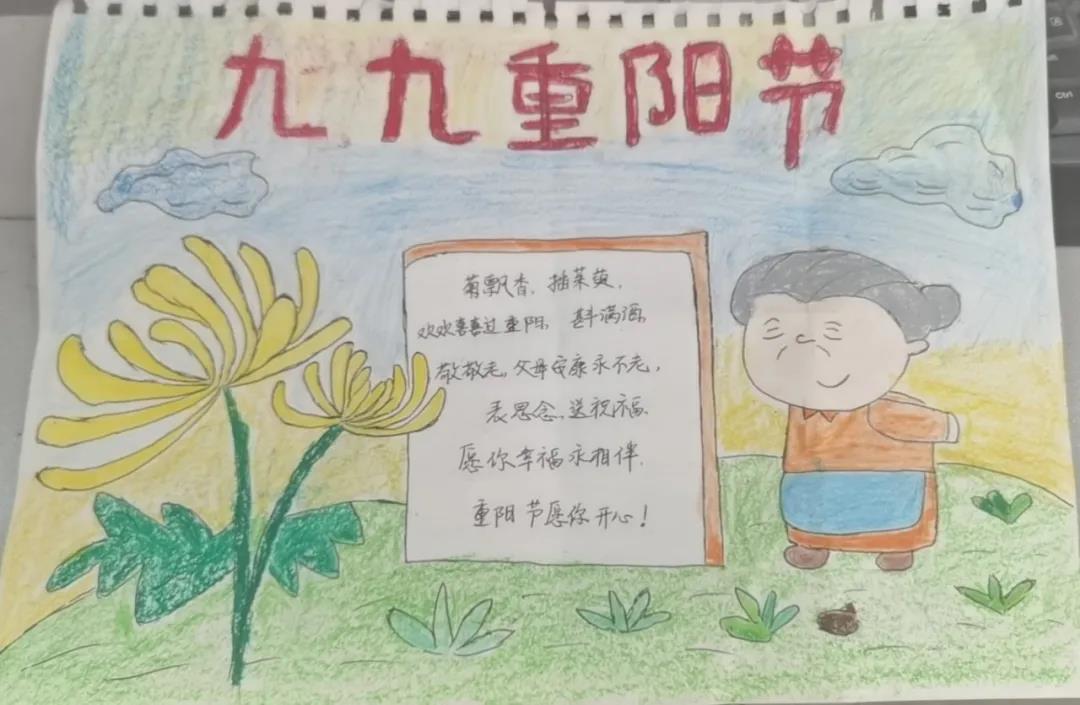 九九重阳节
菊飘香，插茱萸，
欢欢喜喜过重阳，斟满酒，
敬敬老，父母安康永不老，
表思念，送祝福，
愿你幸福永相伴，
重阳节愿你开心！
ctrl